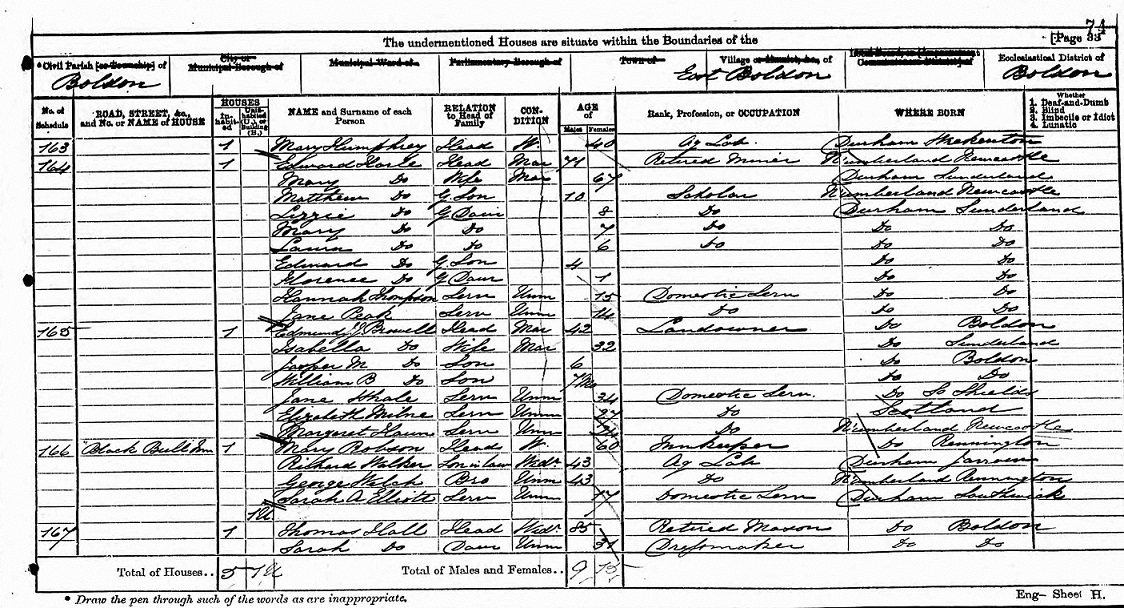 74
[Page 33
The undermentioned Houses are situate within the Boundaries of the
*Civil Parish [or Township] of
City or Municipal Borough of
Municipal Ward of
Parliamentary Borough of
Town of
Village or Hamlet, &c., of
Ecclesiastical District of
Boldon East Boldon Boldon
No. of Schedule
ROAD, STREET, &c., and No. or NAME of HOUSE
HOUSES
In-habit-ed
Unin-habited (U.), or Building (B.)
NAME and Surname of each Person
RELATION to Head of Family
CON-DITION
AGE of
Males Females
Rank, Profession, or OCCUPATION
WHERE BORN
Whether
1. Deaf-and-Dumb
2. Blind
3. Imbecile or Idiot
4. Lunatic
163 1 Mary Humphrey Head W. 40 Ag Lab.
164 1 Edward Head Mar 71 Retired Miner Numberland Newcastle
Mary Do Wife Mar 67 Durham Sunderland
Matthew Do G. Son 10 Scholar Numberland Newcastle
Lizzie Do G Daur 8 Do Durham Sunderland
Mary Do Do 7 Do Do Do
Laura Do Do 6 Do Do Do
Edward Do G. Son 4 Do Do
Florence Do G Daur 1 Do Do
Hannah Thompson Serv Unm 15 Domestic Serv Do Do
Jane Peak Serv Unm 14 Do Do Do
165 1 Edmund J. Head Mar 42 Landowner Do Boldon
Isabella Do Wife Mar 32 Do Sunderland
Jasper M Do Son 6 Do Boldon
William B Do Son 7 Mo Do Do
Jane Whale Serv Unm 24 Domestic Serv. Do So Shields
Elizabeth Milne Serv Unm 27 Do Scotland
Margaret Serv Unm Do Numberland Newcastle
166 Black Bull Inn 1 Mary Robson Head W. 60 Innkeeper Do Rennington
Richard Walker Son in law Widr 43 Ag Lab Durham Jarrow
George Bro Unm 43 Do Numberland Rennington
Sarah A Elliott Serv Unm 17 Domestic Serv Durham Southwick
1 U
167 1 Thomas Hall Head Widr 85 Retired Mason Do Boldon
Sarah Do Daur Unm 31 Dressmaker Do Do
Total of Houses.. 5 1 U Total of Males and Females.. 9 15
* Draw the pen through such of the words as are inappropriate.
Eng- Sheet H.